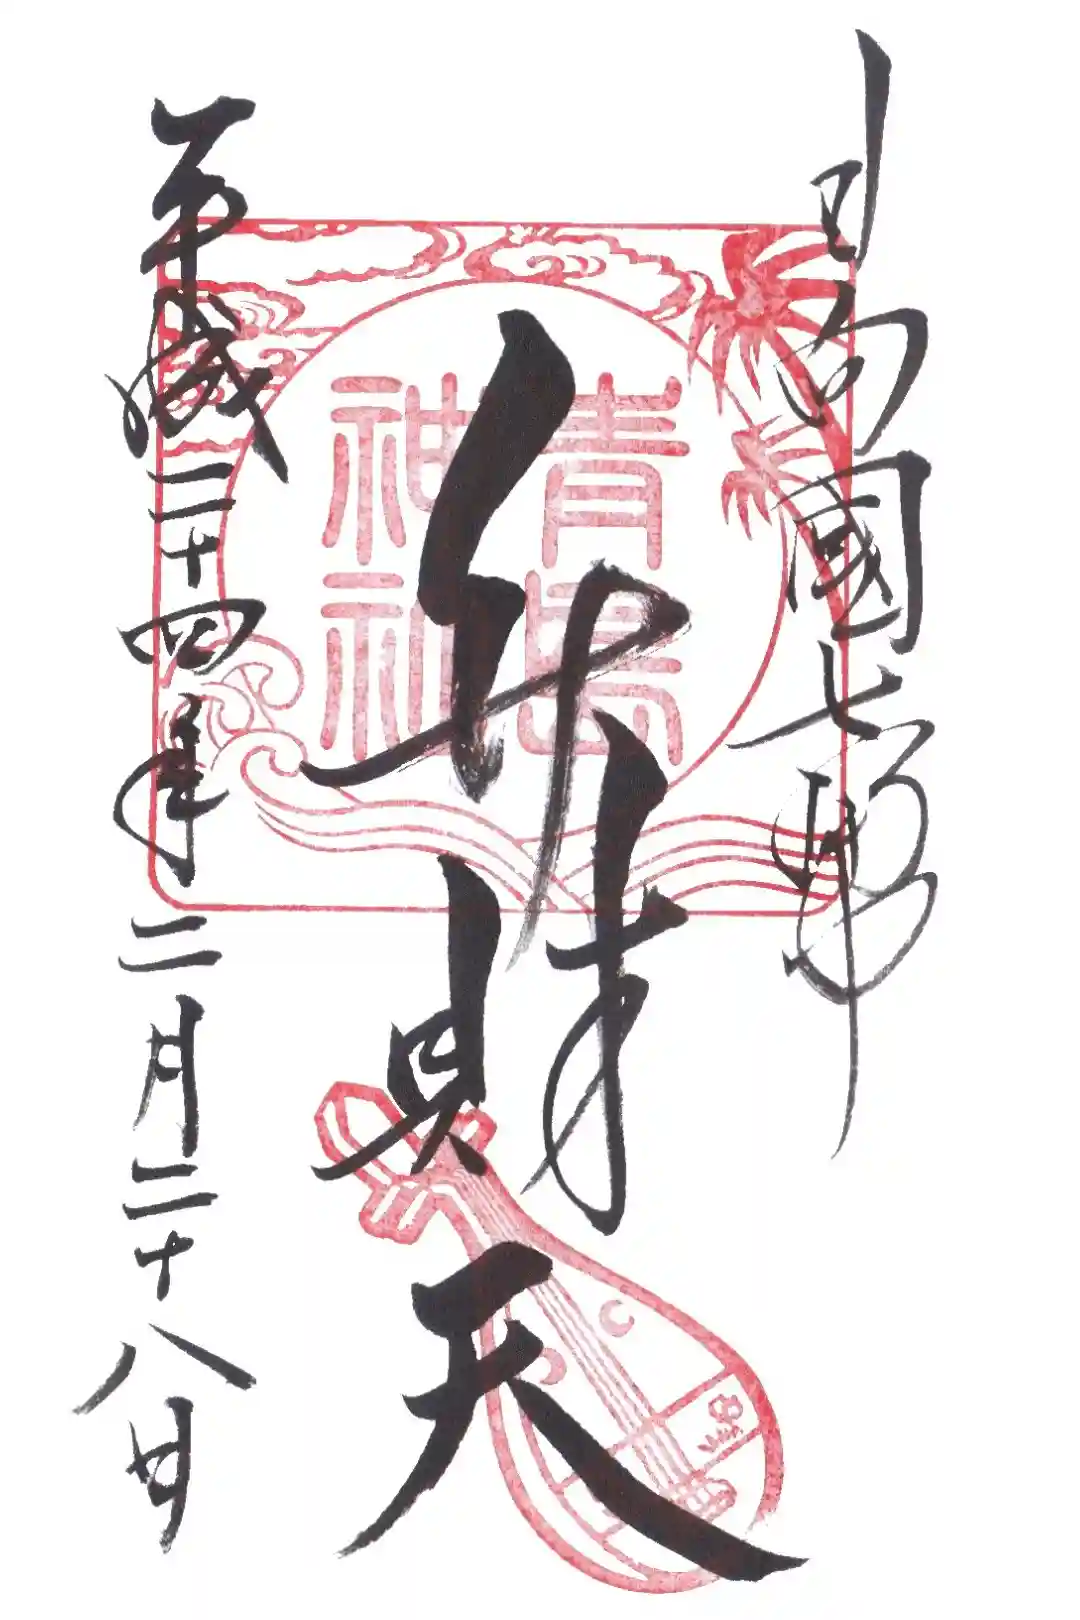 日向國七
弁財天
平成二十四年二月二十八日
青島
神社